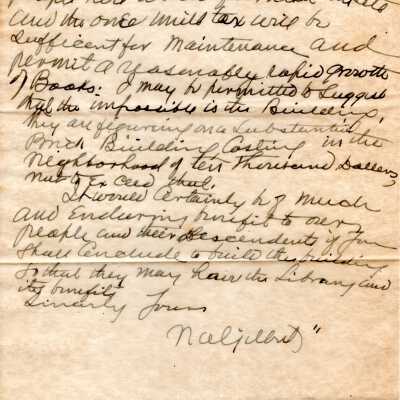 and the once mill tax will be
Sufficent for Maintenance and
permit a reasonably rapid Growth
of Books: I may be permitted to Suggest
that the impossible is the Building,
they are figuring on a Substantial
Brick Building Costing in the
Neighborhood of ten Thousand Dollers,
not to Exceed that.
It would Certainly be of Much
and Enduring benefit to our
people and their descendents if you
Shall Conclude to build the building
So that they may have the Library and
its benefits
Sincerly Yours